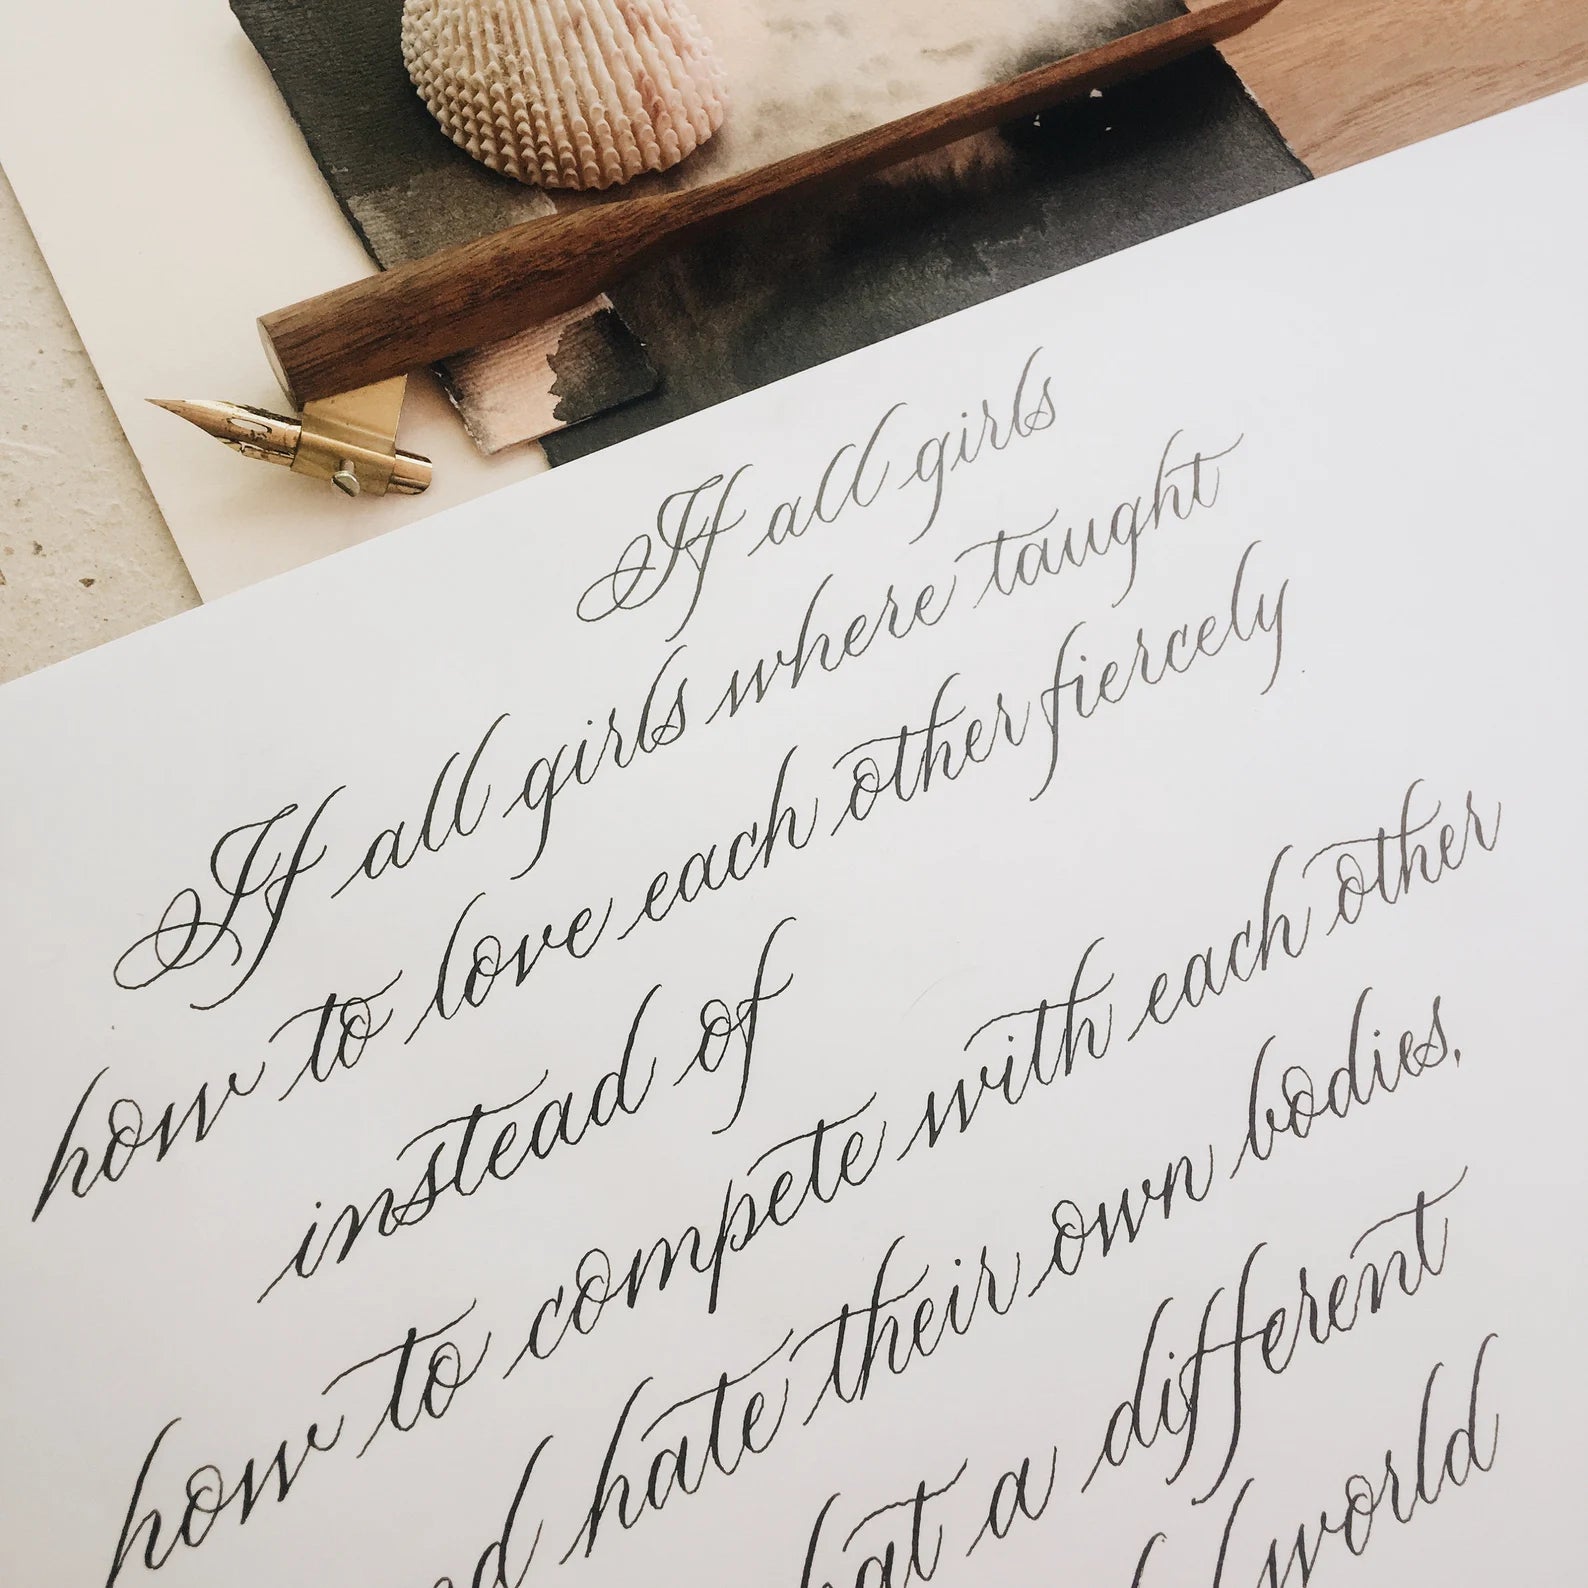 If all girls
If all girls where taught
how to love each other fiercely
instead of
how to compete with each other
hate their own bodies,
a different
world